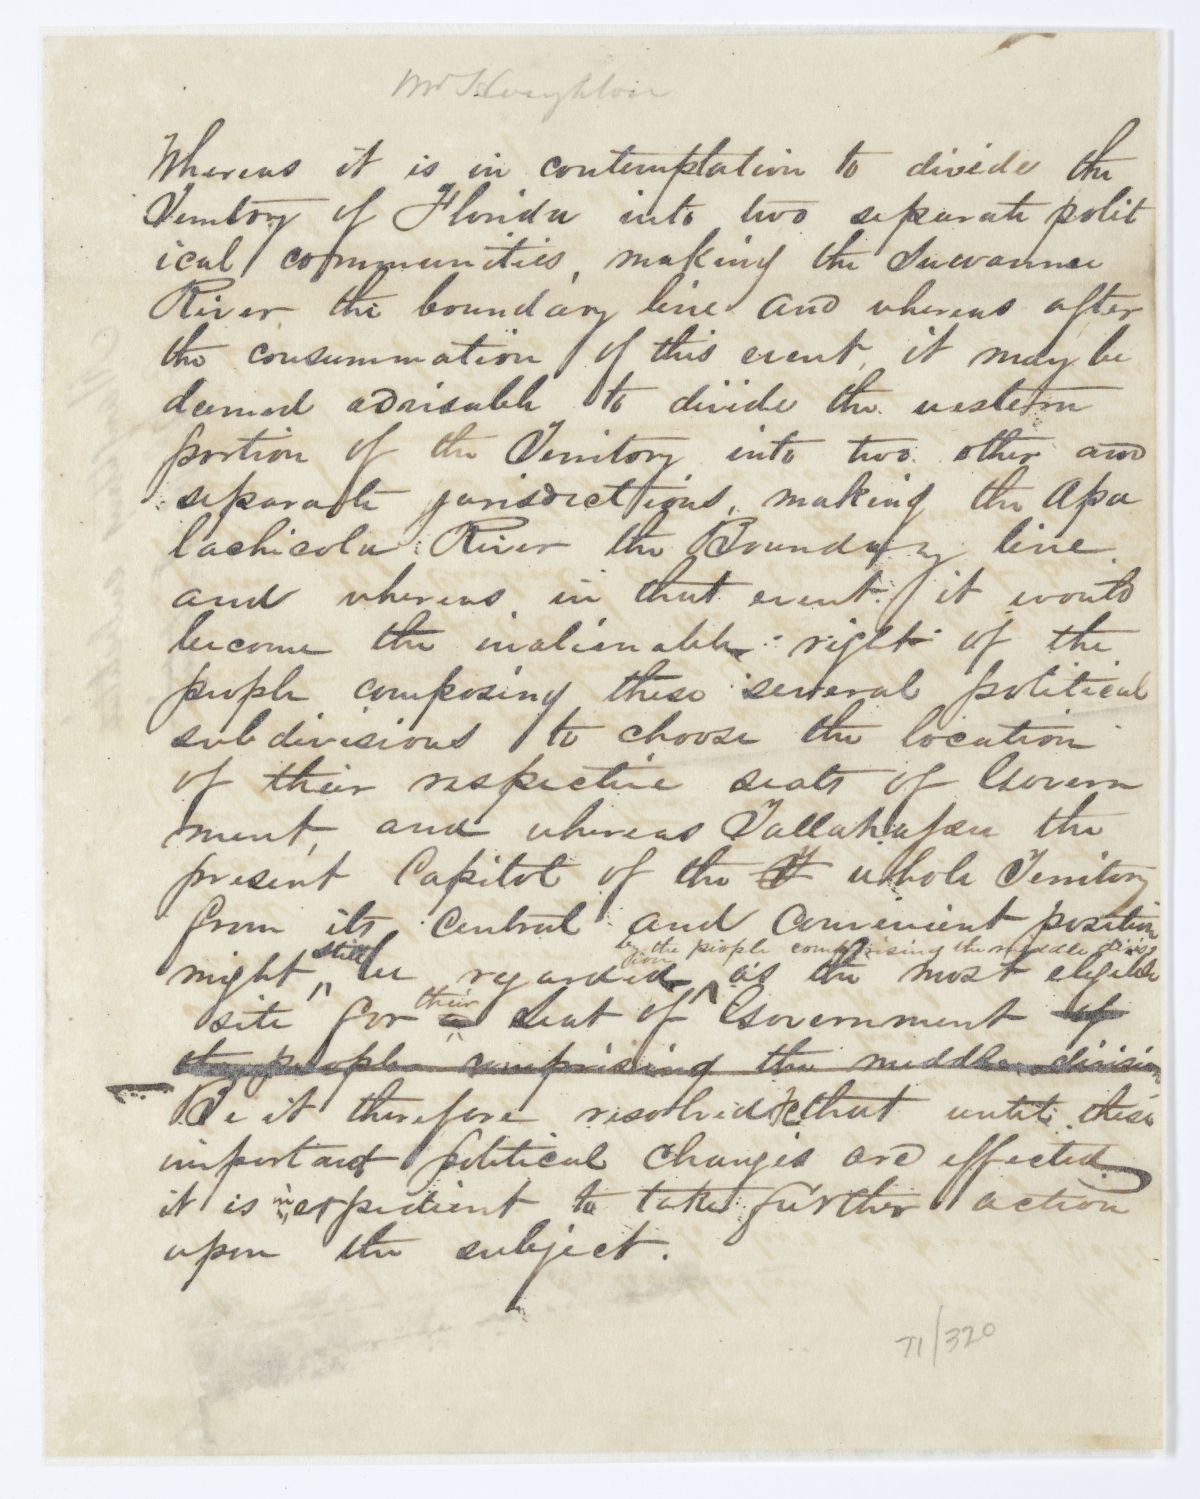 Mr Houghton
Whereas it is in contemplation to divide the
Territory of Florida into two separate polit
ical communities, making the Suwannee
River the boundary line and whereas after
the consummation of this event, it may be
deemed advisable to divide the western
portion of the Territory into two other and
separate jurisdictions, making the Apa
lachicola River the Boundary line
and whereas, in that event it would
become the inalienable right of the
people composing these several political
subdivisions to choose the location
of their respective seats of Govern
ment, and whereas Tallahassee the
present Capitol of the T whole Territory
from its central and convenient position
by the people comprising the middle divis
ion
might, still be regarded as the most eligible
site for a their seat of Government of
the people comprising the middle division
Be it therefore resolved that until these
important political changes are effected
it is inexpedient to take further action
upon the subject.
71/320